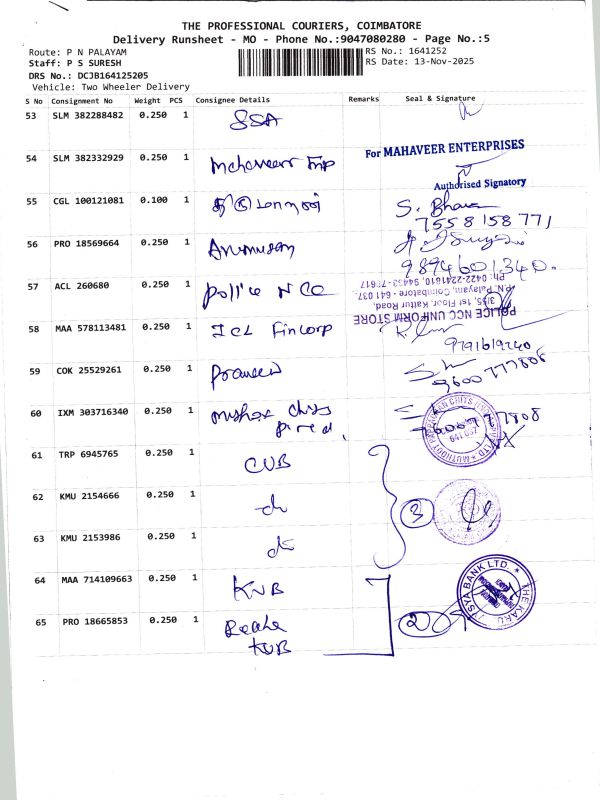 THE PROFESSIONAL COURIERS, COIMBATORE
Delivery Runsheet - MO - Phone No.:9047080280 - Page No.:5
Route: P N PALAYAM
RS No.: 1641252
Staff: P S SURESH
RS Date: 13-Nov-2025
DRS No.: DCJB164125205
Vehicle: Two Wheeler Delivery
S No Consignment No Weight PCS Consignee Details Remarks Seal & Signature
53 SLM 382288482 0.250 1 SSA
54 SLM 382332929 0.250 1 Mahaveer Enp
For MAHAVEER ENTERPRISES
Authorised Signatory
55 CGL 100121081 0.100 1
S. Bhava
7558158771
56 PRO 18569664 0.250 1 Arumugam
9894601340.
57 ACL 260680 0.250 1 police NCC
POLICE NCC UNIFORM STORE
3/55, 1st Floor, Kattur Road,
P.N. Palayam, Coimbatore - 641 037.
58 MAA 578113481 0.250 1 ICL Fincorp
9791619240
59 COK 25529261 0.250 1 praveen
9600777808
60 IXM 303716340 0.250 1
61 TRP 6945765 0.250 1 CUB
62 KMU 2154666 0.250 1 do
3
63 KMU 2153986 0.250 1 do
64 MAA 714109663 0.250 1 KVB
THE KARUR VYSYA BANK LTD.
65 PRO 18665853 0.250 1
KVB
2